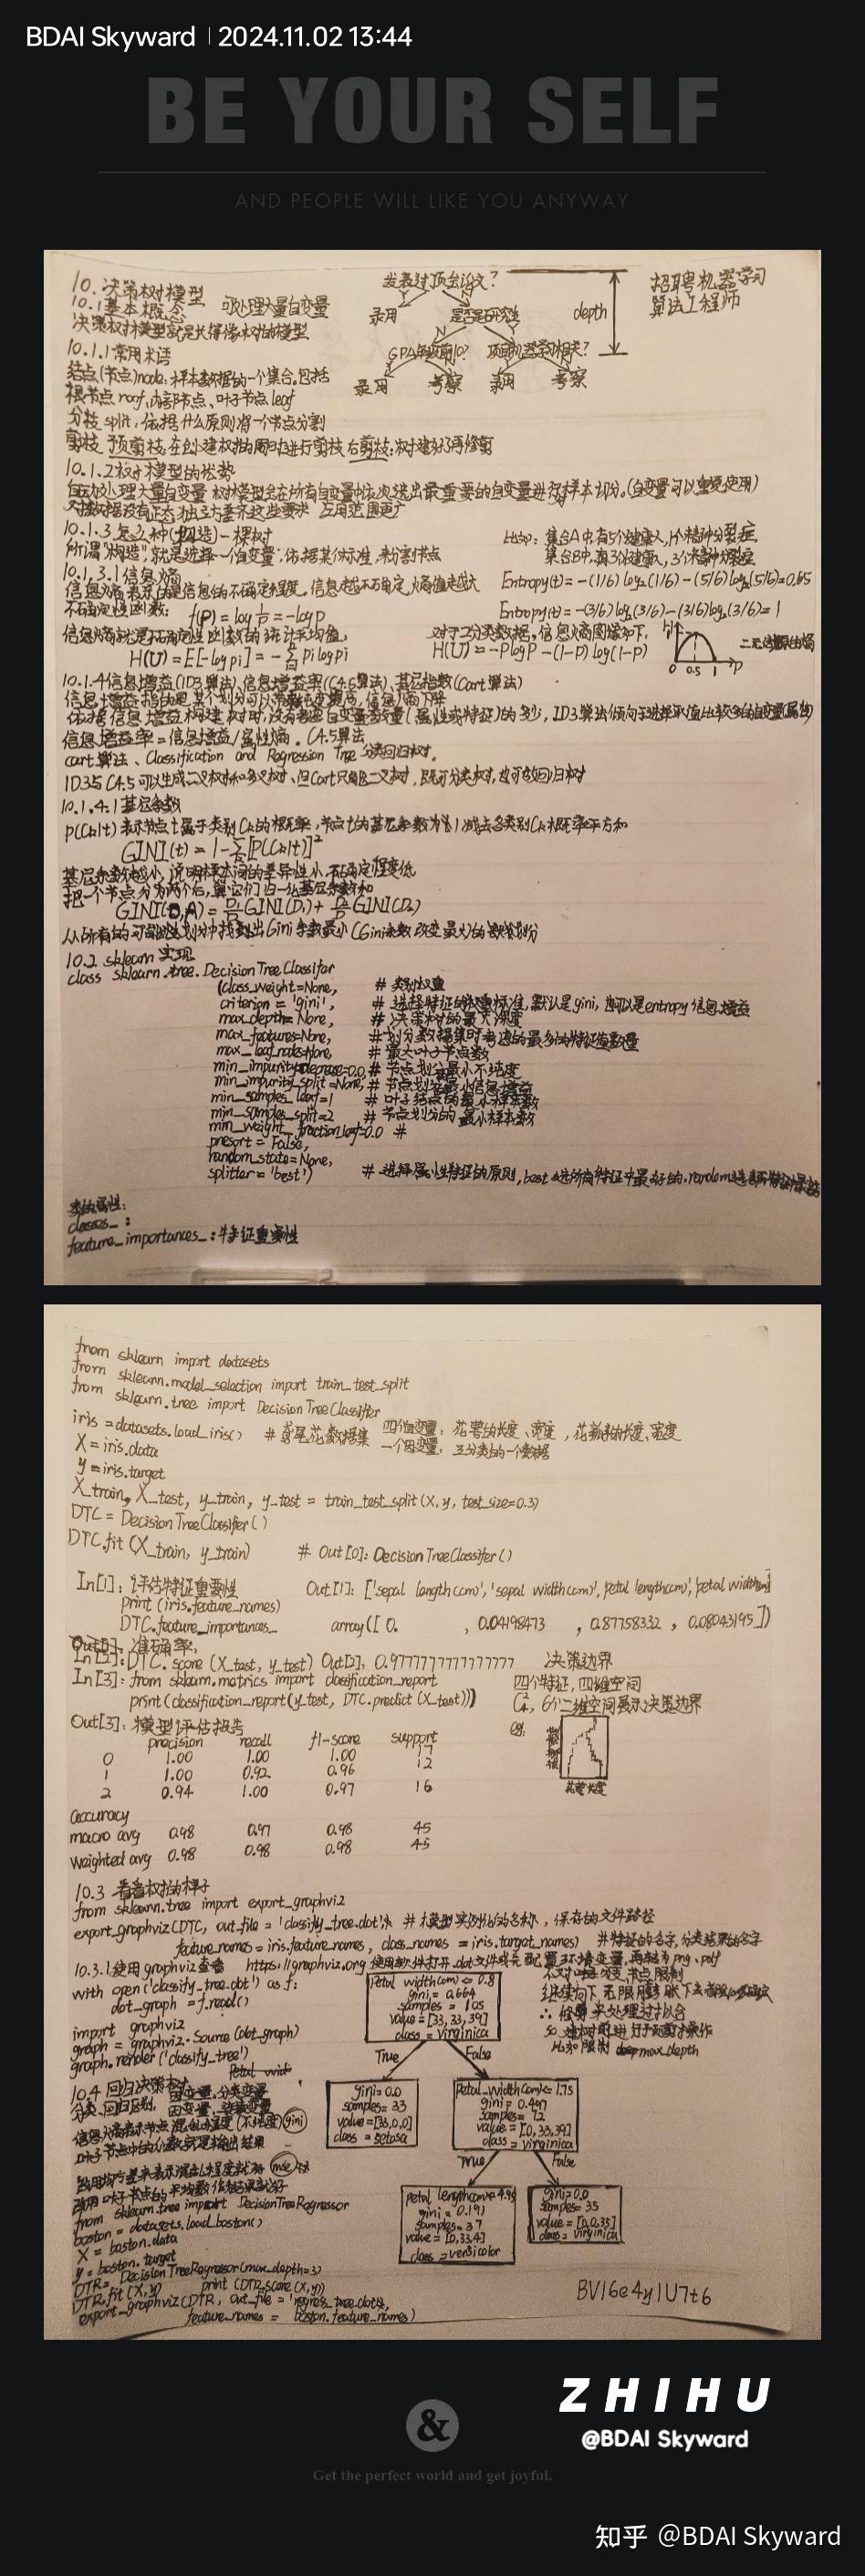 BDAI Skyward | 2024.11.02 13:44
BE YOUR SELF
AND PEOPLE WILL LIKE YOU ANYWAY
10. 决策树模型
10.1 基本概念 可处理大量自变量
决策树模型就是长得像树的模型
发表过顶会论文?
Y N
录用 是否是研究生
N Y
GPA年级前10? 项目机器学习相关?
录用 考察 录用 考察
depth
招聘机器学习
算法工程师
10.1.1 常用术语
结点(节点)node: 样本数据的一个集合.包括
根节点 root, 内部节点、叶子节点 leaf
分枝 split: 依据什么原则将一个节点分割
剪枝 预剪枝:在创建树的同时进行剪枝 后剪枝:树建好了再修剪
10.1.2 树模型的优势
自动处理大量自变量 树模型会在所有自变量中依次选出最重要的自变量进行样本切分。(自变量可以重复使用)
对数据没有正态、独立、方差齐这些要求 应用范围更广
10.1.3 怎么种(构造)一棵树
所谓"构造",就是选择一个自变量,依据某个标准,来分割节点
比如: 集合A中有5个健康人,1个精神分裂症
集合B中,有3个健康人,3个精神分裂症
10.1.3.1 信息熵
信息熵表示的是信息的不确定程度。信息越不确定,熵值越大
Entropy(t) = -(1/6) log₂(1/6) - (5/6) log₂(5/6) = 0.65
不确定性函数: f(P) = log 1/P = -log P
Entropy(t) = -(3/6) log₂(3/6) - (3/6) log₂(3/6) = 1
信息熵就是不确定性函数的统计平均值,
H(U) = E[-log pi] = -Σ pi log pi
对于二分类数据,信息熵图像如下,
H(U) = -P log P - (1-P) log (1-P)
0 0.5 1 P
10.1.4 信息增益(ID3算法),信息增益率(C4.5算法),基尼指数(Cart算法)
依据信息增益构建树时,没有考虑自变量变量(属性或特征)的多少, ID3算法倾向于选择取值比较多的自变量(属性)
信息增益率 = 信息增益/属性熵。 C4.5算法
cart算法、Classification and Regression Tree 分类回归树。
ID3与C4.5可以生成二叉树和多叉树、但Cart只能二叉树, 既可分类树,也可做回归树
10.1.4.1 基尼系数
P(Ck|t) 表示节点t属于类别Ck的概率,节点t的基尼系数为 1减去各类别Ck概率平方和
GINI(t) = 1-Σ[P(Ck|t)]²
基尼系数越小,说明样本间的差异性小,不确定程度低
把一个节点分为两个后,
GINI(D,A) = D₁/D GINI(D₁) + D₂/D GINI(D₂)
10.2 sklearn 实现
class sklearn.tree.DecisionTreeClassifer
(class_weight=None, # 类别权重
criterion = 'gini', # 选择特征的标准,默认是gini, 也可以是entropy 信息增益
max_depth= None, # 决策树的最大深度
max_features=None, # 划分数据集时考虑的最多的特征值数量
max_leaf_nodes=None, # 最大叶子节点数
min_impurity_decrease=0.0, # 节点划分最小不纯度
min_impurity_split =None, # 节点划分最小信息增益
min_samples_leaf=1 # 叶子结点的最小样本数
min_samples_split=2 # 节点划分的最小样本数
min_weight_fraction_leaf=0.0 #
presort = False,
random_state=None,
splitter = 'best') # 选择属性特征的原则, best 选所有特征中最好的,
类的属性:
classes_ :
feature_importances_ : 特征重要性
from sklearn import datasets
from sklearn.model_selection import train_test_split
from sklearn.tree import DecisionTreeClassifier
iris = datasets.load_iris() # 鸢尾花数据集 四个自变量: 花萼的长度、宽度 , 花瓣的长度、宽度
一个因变量: 三分类的一个数据
X = iris.data
y = iris.target
X_train, X_test, y_train, y_test = train_test_split (X, y, test_size=0.3)
DTC = DecisionTreeClassifer ( )
DTC.fit (X_train, y_train) # Out [0]: DecisionTreeClassifer ( )
In[1]: 评估特征重要性 Out[1]: ['sepal length(cm)', 'sepal width(cm)', 'petal length(cm)', 'petal width(cm)']
print (iris.feature_names)
DTC.feature_importances_ array([ 0. , 0.04198473 , 0.87758332 , 0.08043195 ])
准确率,
In [2]: DTC. score (X_test, y_test) Out[2]: 0.9777777777777777
In [3]: from sklearn.metrics import classification_report
print(classification_report(y_test, DTC.predict (X_test)))
决策边界
四个特征,四维空间
C₄², 6个二维空间展示决策边界
eg:
花萼长度
Out[3]: 模型评估报告
precision recall f1-score support
0 1.00 1.00 1.00 17
1 1.00 0.92 0.96 12
2 0.94 1.00 0.97 16
accuracy
macro avg 0.98 0.97 0.98 45
weighted avg 0.98 0.98 0.98 45
10.3 看看树的样子
from sklearn.tree import export_graphviz
export_graphviz(DTC, out_file = 'classify_tree.dot', # 模型实例化的名称, 保存的文件路径
feature_names = iris.feature_names, class_names = iris.target_names) # 特征的名字, 分类结果的名字
10.3.1 使用graphviz查看 https://graphviz.org 使用软件打开.dot文件或先配置环境变量,再转为png、pdf
with open('classify_tree.dot') as f:
dot_graph = f.read()
import graphviz
graph = graphviz.Source (dot_graph)
graph.render ('classify_tree')
Petal width(cm) <= 0.8
gini= 0.664
samples = 105
value = [33, 33, 39]
class = virginica
True False
gini=0.0
samples= 33
value =[33,0,0]
class = setosa
petal_width(cm)<= 1.75
gini = 0.497
samples= 72
value = [0,33,39]
class = virginica
True False
petal length(cm)<= 4.95
gini = 0.191
samples= 37
value = [0,33,4]
class = versicolor
gini=0.0
samples= 35
value = [0,0,35]
class = virginica
10.4 回归决策树
分类、回归区别, 因变量、分类变量
因变量、连续变量
信息熵表示节点混乱程度(不纯度) gini
mse
from sklearn.tree import DecisionTreeRegressor
boston = datasets.load_boston()
X = boston.data
y = boston.target
DTR= DecisionTreeRegressor(max_depth=3)
DTR.fit (X, y) print (DTR.score (X, y))
export_graphviz(DTR, out_file = 'regress_tree.dot',
feature_names = boston.feature_names)
BV16e4y1U7t6
ZHIHU
@BDAI Skyward
&
Get the perfect world and get joyful.
知乎 @BDAI Skyward